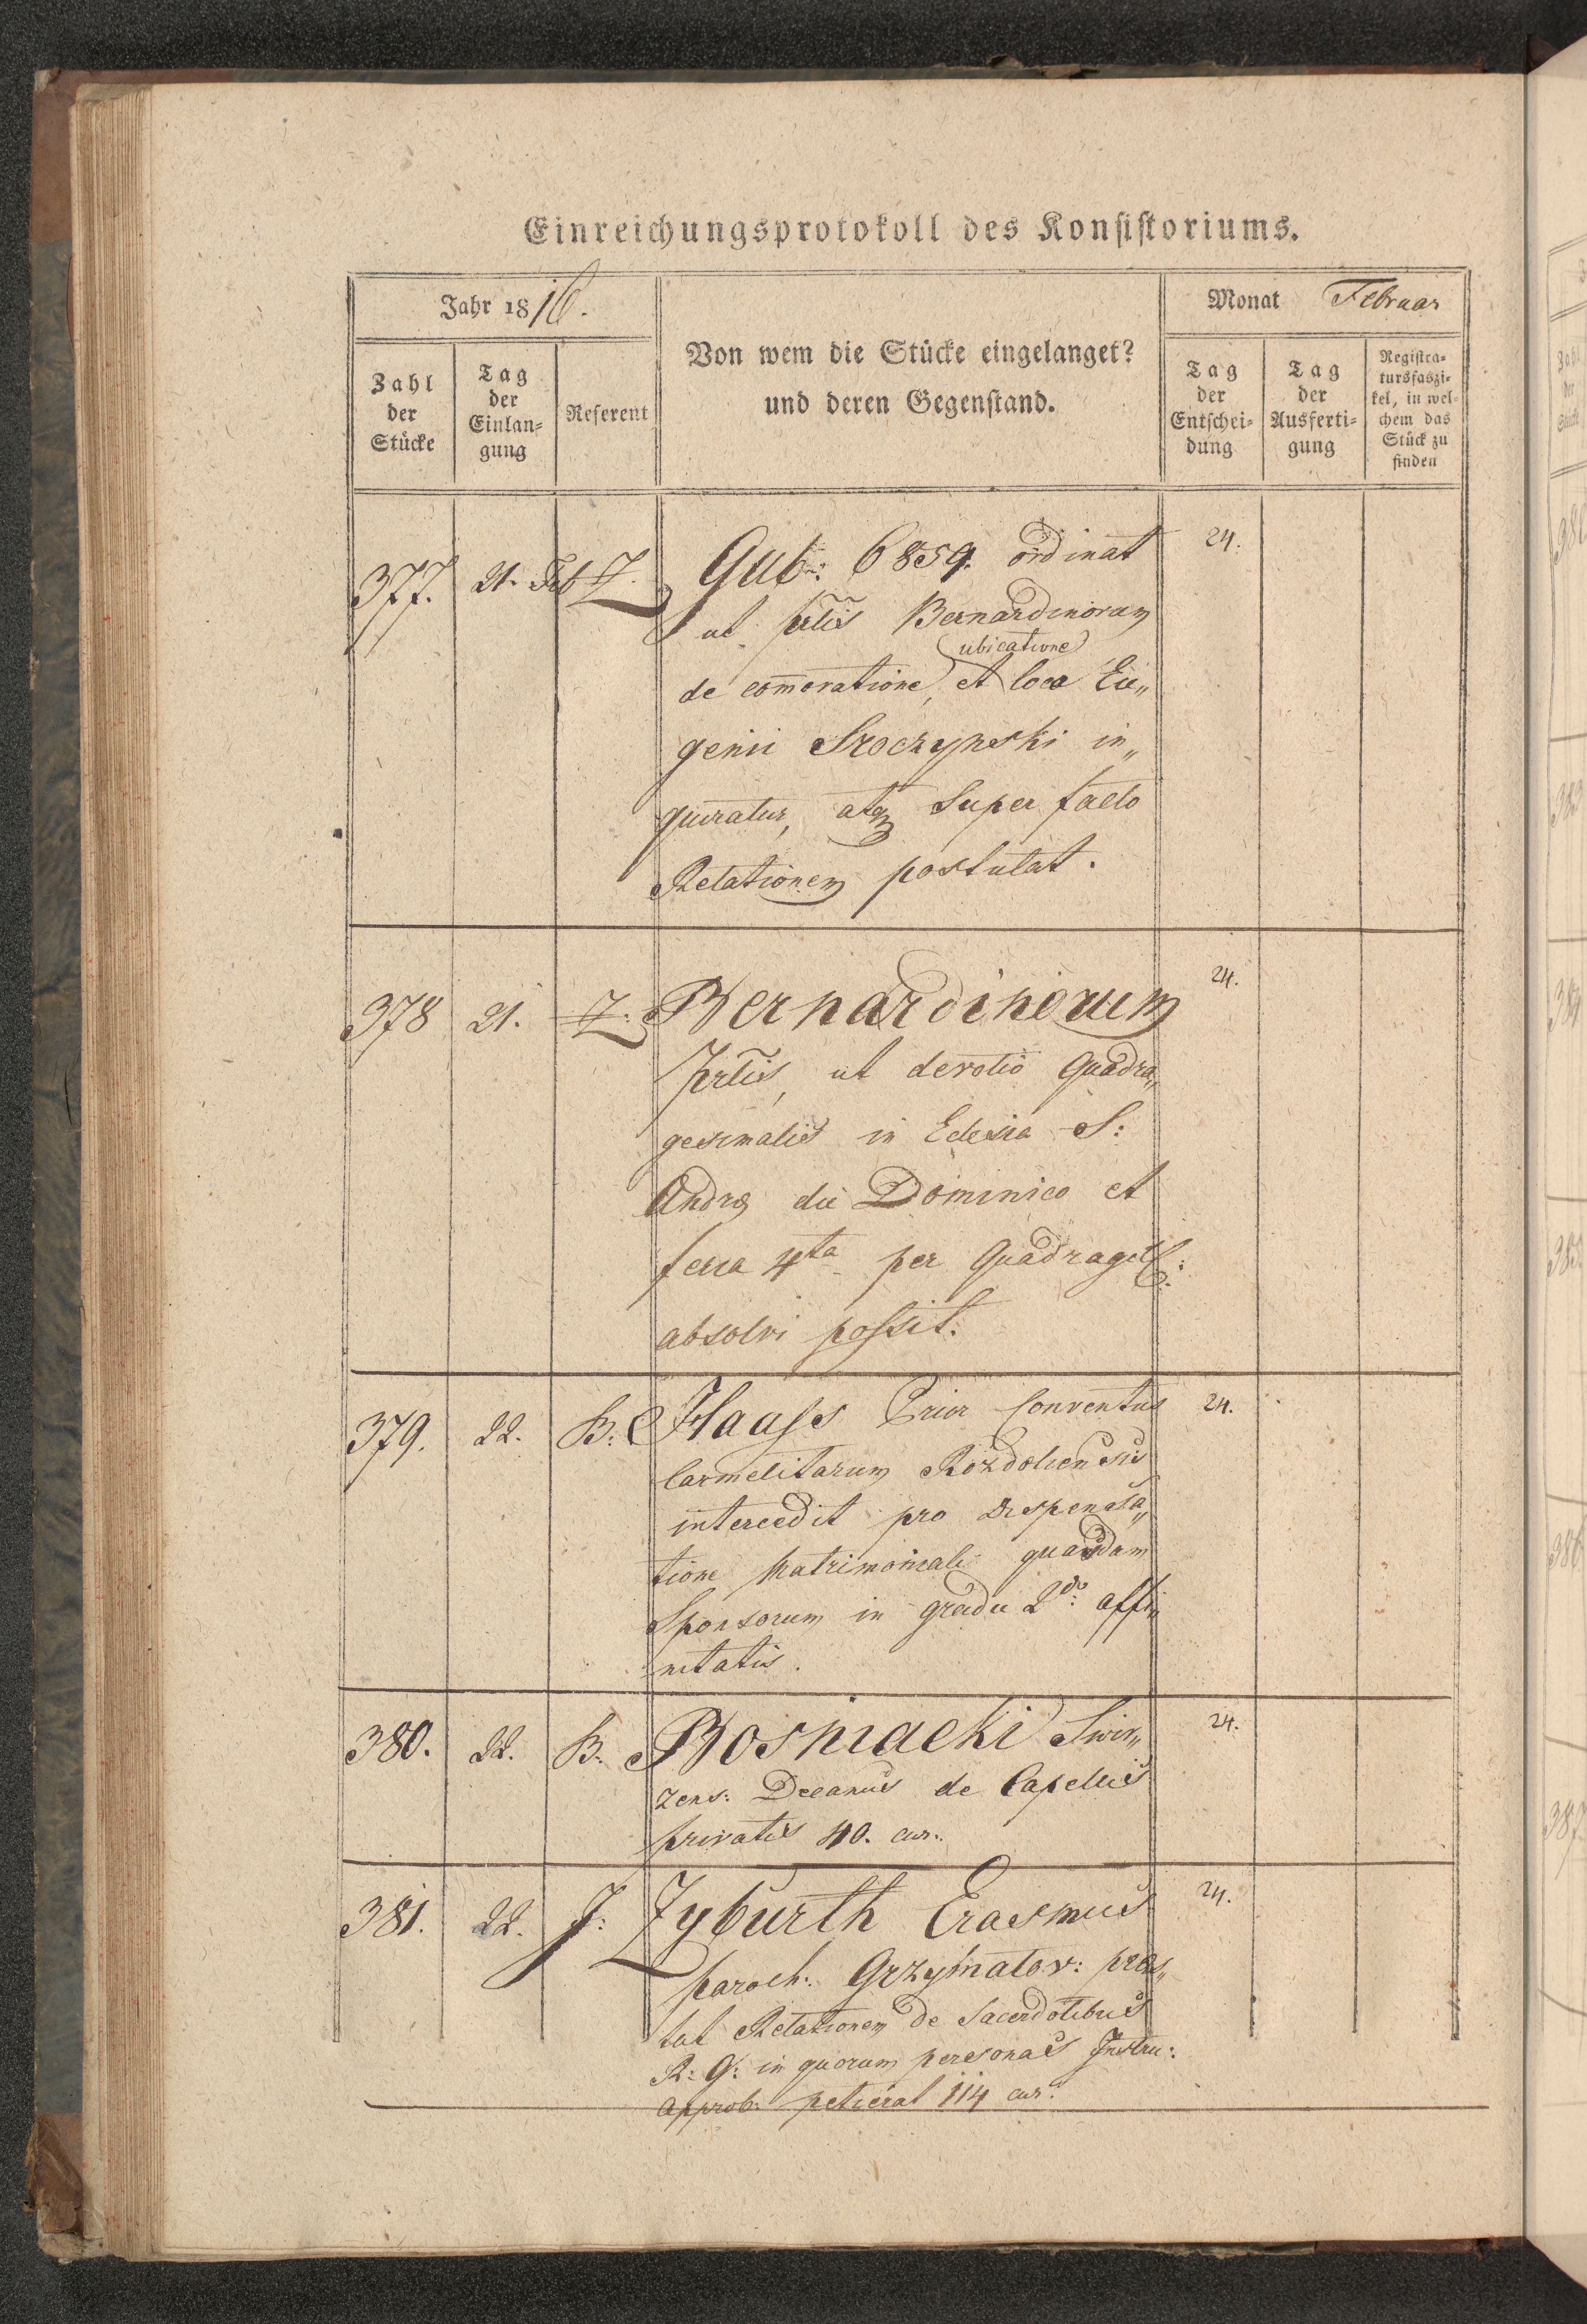 Einreichungsprotokoll des Konsistoriums.
Jahr 1816.
Monat Februar
Zahl der Stücke
Tag der Einlan-gung
Referent
Von wem die Stücke eingelanget?
und deren Gegenstand.
Tag der Entschei-dung
Tag der Ausferti-gung
Registra-tursfaszi-kel, in wel-chem das Stück zu finden
377. 21. Feb Z. Gub: 6859. ordinat 24.
ut prlis Bernardinorum
ubicatione
de com̄oratione, et loco Eu„
genii Sroczynski in„
quiratur, atq super facto
Relationem postulat.
378 21. Z. Bernardinorum 24.
prlis, ut devotio Quadra„
gesimalis in Eclesia S:
Andrę die Dominico et
feria 4ta per Quadrages:
absolvi possit.
379. 22. B: Haass Prior Conventus 24.
Carmelitarum Rozdoliensis
intercedit pro dispensa„
tione Matrimoniali quorundam
Sponsorum in gradu 2do: affi„
nitatis.
380. 22. B. Bosniacki Swir„ 24.
zens: Decanus de Capellis
privatis 40. cur:
381. 22. J: Zyburth Erasmus 24.
paroch: Grzymalov: præs„
tat Relationem de Sacerdotibus
R: G: in quorum personas Instru:
approb: petierat 114 cur: